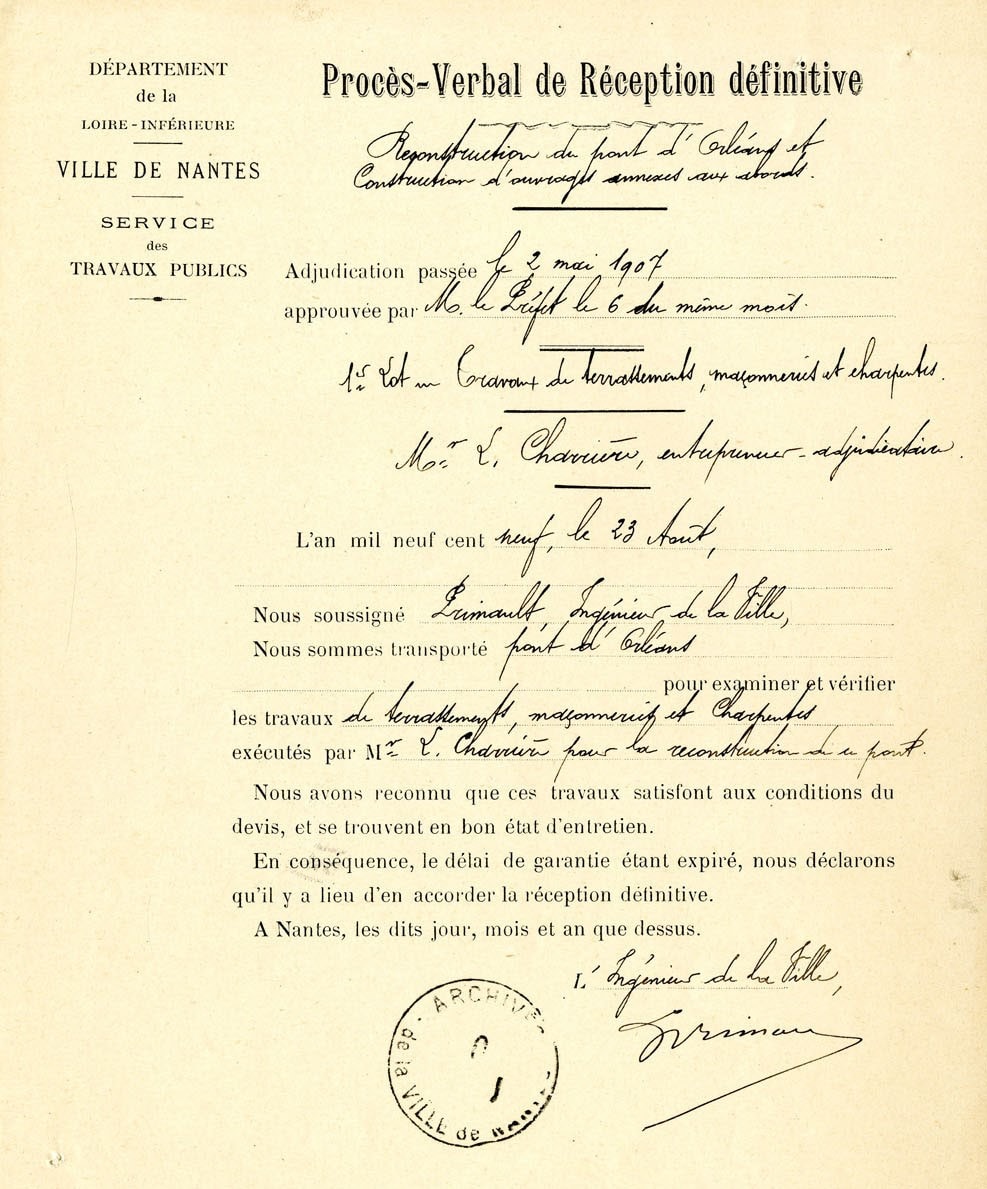 DÉPARTEMENT
de la
LOIRE-INFÉRIEURE
VILLE DE NANTES
SERVICE
des
TRAVAUX PUBLICS
Procès-Verbal de Réception définitive
Reconstruction du pont d'Orléans et
Construction d'ouvrages annexes aux abords.
Adjudication passée le 2 mai 1907
approuvée par M. le Préfet le 6 du même mois.
1er Lot Travaux de terrassements, maçonneries et charpentes.
Mr L. Charrière, entrepreneur-adjudicataire.
L'an mil neuf cent neuf, le 23 Août,
Nous soussigné Primault, Ingénieur de la Ville,
Nous sommes transporté pont d'Orléans
pour examiner et vérifier
les travaux de terrassements, maçonneries et Charpentes
exécutés par Mr L. Charrière pour la reconstruction de ce pont.
Nous avons reconnu que ces travaux satisfont aux conditions du
devis, et se trouvent en bon état d'entretien.
En conséquence, le délai de garantie étant expiré, nous déclarons
qu'il y a lieu d'en accorder la réception définitive.
A Nantes, les dits jour, mois et an que dessus.
L'Ingénieur de la Ville,
ARCHIVES
de la VILLE de NANTES